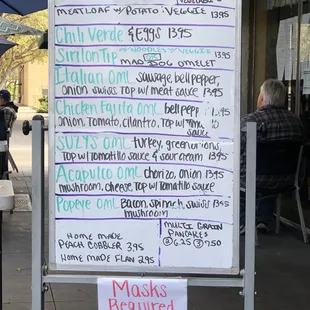 MEATLOAF w/POTATO: VEGGIE 1395
Chili Verde & Eggs 1395
Sirlion Tip w/NOODLES w/VEGGIE 1395
MAD DOG OMELET
Italian OML sausage, bell pepper,
onion, swiss, top w/ meat sauce 1395
Chicken Fajita OML bell pepp
onion, Tomato, cilantro, top w/
sauce
SUZYS OML turkey, green onions,
top w/ Tomatillo sauce & sour cream 1395
Acapulco OML Chorizo, onion
mushroom, cheese, Top w/ Tomatillo sauce
Popeye OML Bacon, spinach, swiss 1395
mushroom
HOME MADE
PEACH COBBLER 3.95
HOME MADE FLAN 2.95
MULTI GRAIN
PANCAKES
② 6.25 ③ 7.50
Masks
Required